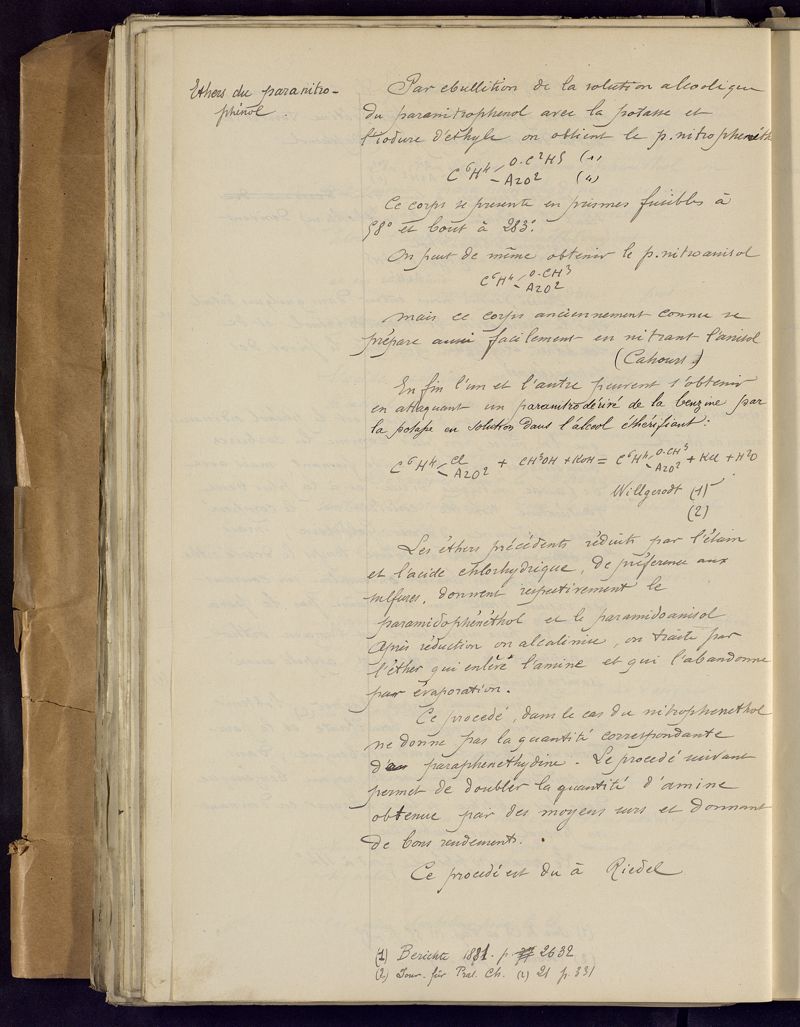 Ethers du paranitro-
phénol.
Par ebullition de la solution alcoolique
du paranitrophenol avec la potasse et
l'iodure d'ethyle on obtient le p. nitrophenéth
C⁶H⁴ O.C²H⁵ (1)
AzO² (4)
Ce corps se presente en prismes fusibles à
58° et bout à 283°.
On peut de même obtenir le p. nitroanisol
C⁶H⁴ O-CH³
AzO²
mais ce corps anciennement connu se
prépare aussi facilement en nitrant l'anisol
(Cahours.)
Enfin l'un et l'autre peuvent s'obtenir
en attaquant un paranitrodérivé de la benzine par
la potasse en solution dans l'alcool éthérifiant:
C⁶H⁴ Cl AzO² + CH³OH + KOH = C⁶H⁴ O-CH³ AzO² + KCl + H²O
Willgerodt (1)
(2)
Les éthers précédents réduits par l'étain
et l'acide chlorhydrique, de préference aux
sulfures, donnent respectivement le
paramidophénéthol et le paramidoanisol
Après réduction on alcalinise, on traite par
l'éther qui enlève l'amine et qui l'abandonne
par évaporation.
Ce procedé, dans le cas du nitrophenethol
ne donne pas la quantité correspondante
de paraphenethydine. Le procedé suivant
permet de doubler la quantité d'amine
obtenue par des moyens surs et donnant
de bons rendements.
Ce procedé est du à Riedel
(1) Berichte 1881. p 2632
(2) Jour. für Pral. Ch. (2) 21 p. 331